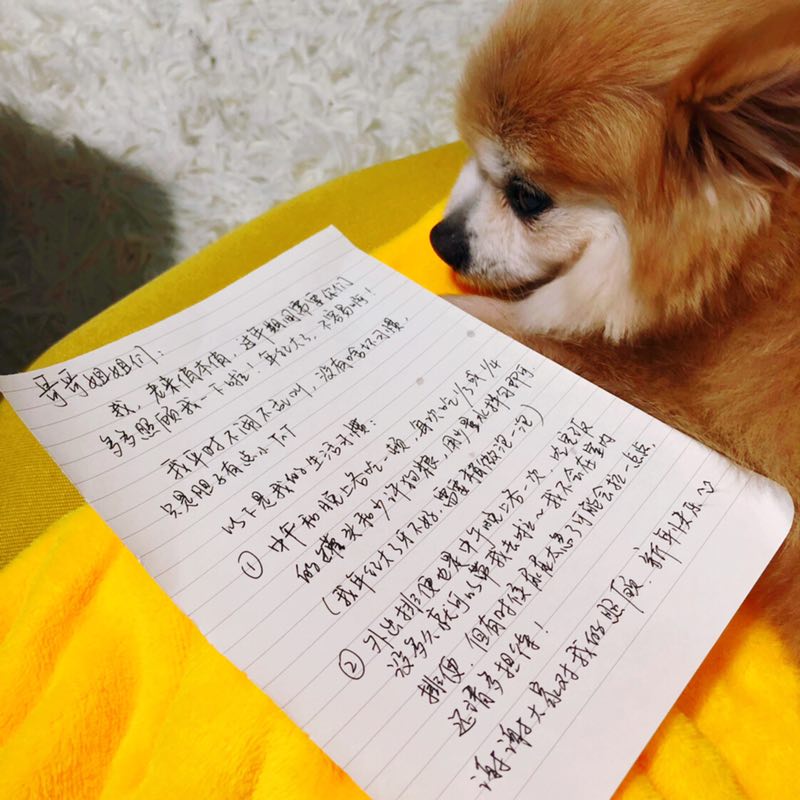 哥哥姐姐们：
我，老来俏本俏，过年期间需要你们
多多照顾我一下啦！年纪大了，不容易啊！
我平时不闹不乱叫，没有啥坏习惯，
只是胆子有点小TnT
以下是我的生活习惯：
① 中午和晚上各吃一顿，每次吃1/3或1/4
的罐头和少许狗粮，用少量水拌匀即可
（我年纪大了牙不好，需要稍微泡一泡）
② 外出排便也是中午晚上各一次，吃完饭
没多久就可以带我去拉～我不会在室内
排便，但有时候尿急不忍了可能会拉一点点
还请多担待！
谢谢大家对我的照顾，新年快乐